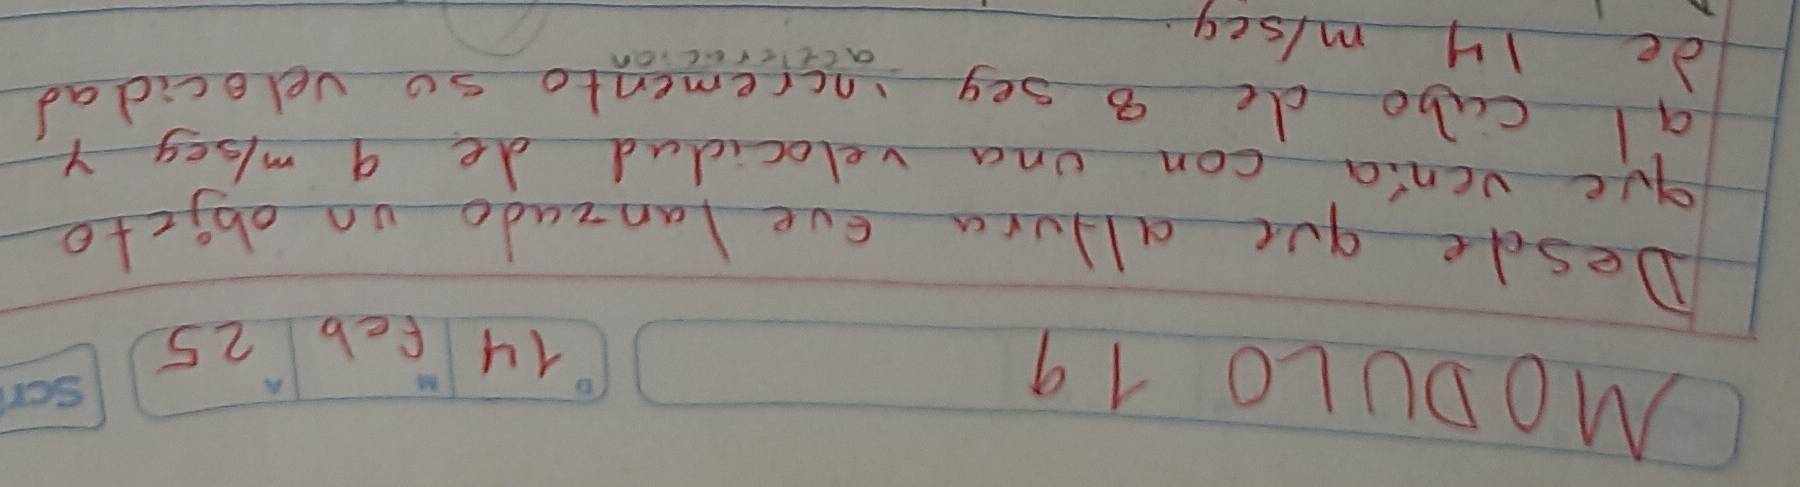 MODULO 19
D 14 M Feb A 25
Scri
Desde que altura fue lanzado un objeto
que venia con una velocidad de 9 m/seg y
al cabo de 8 seg incremento su velocidad
aceleracion
de 14 m/seg.